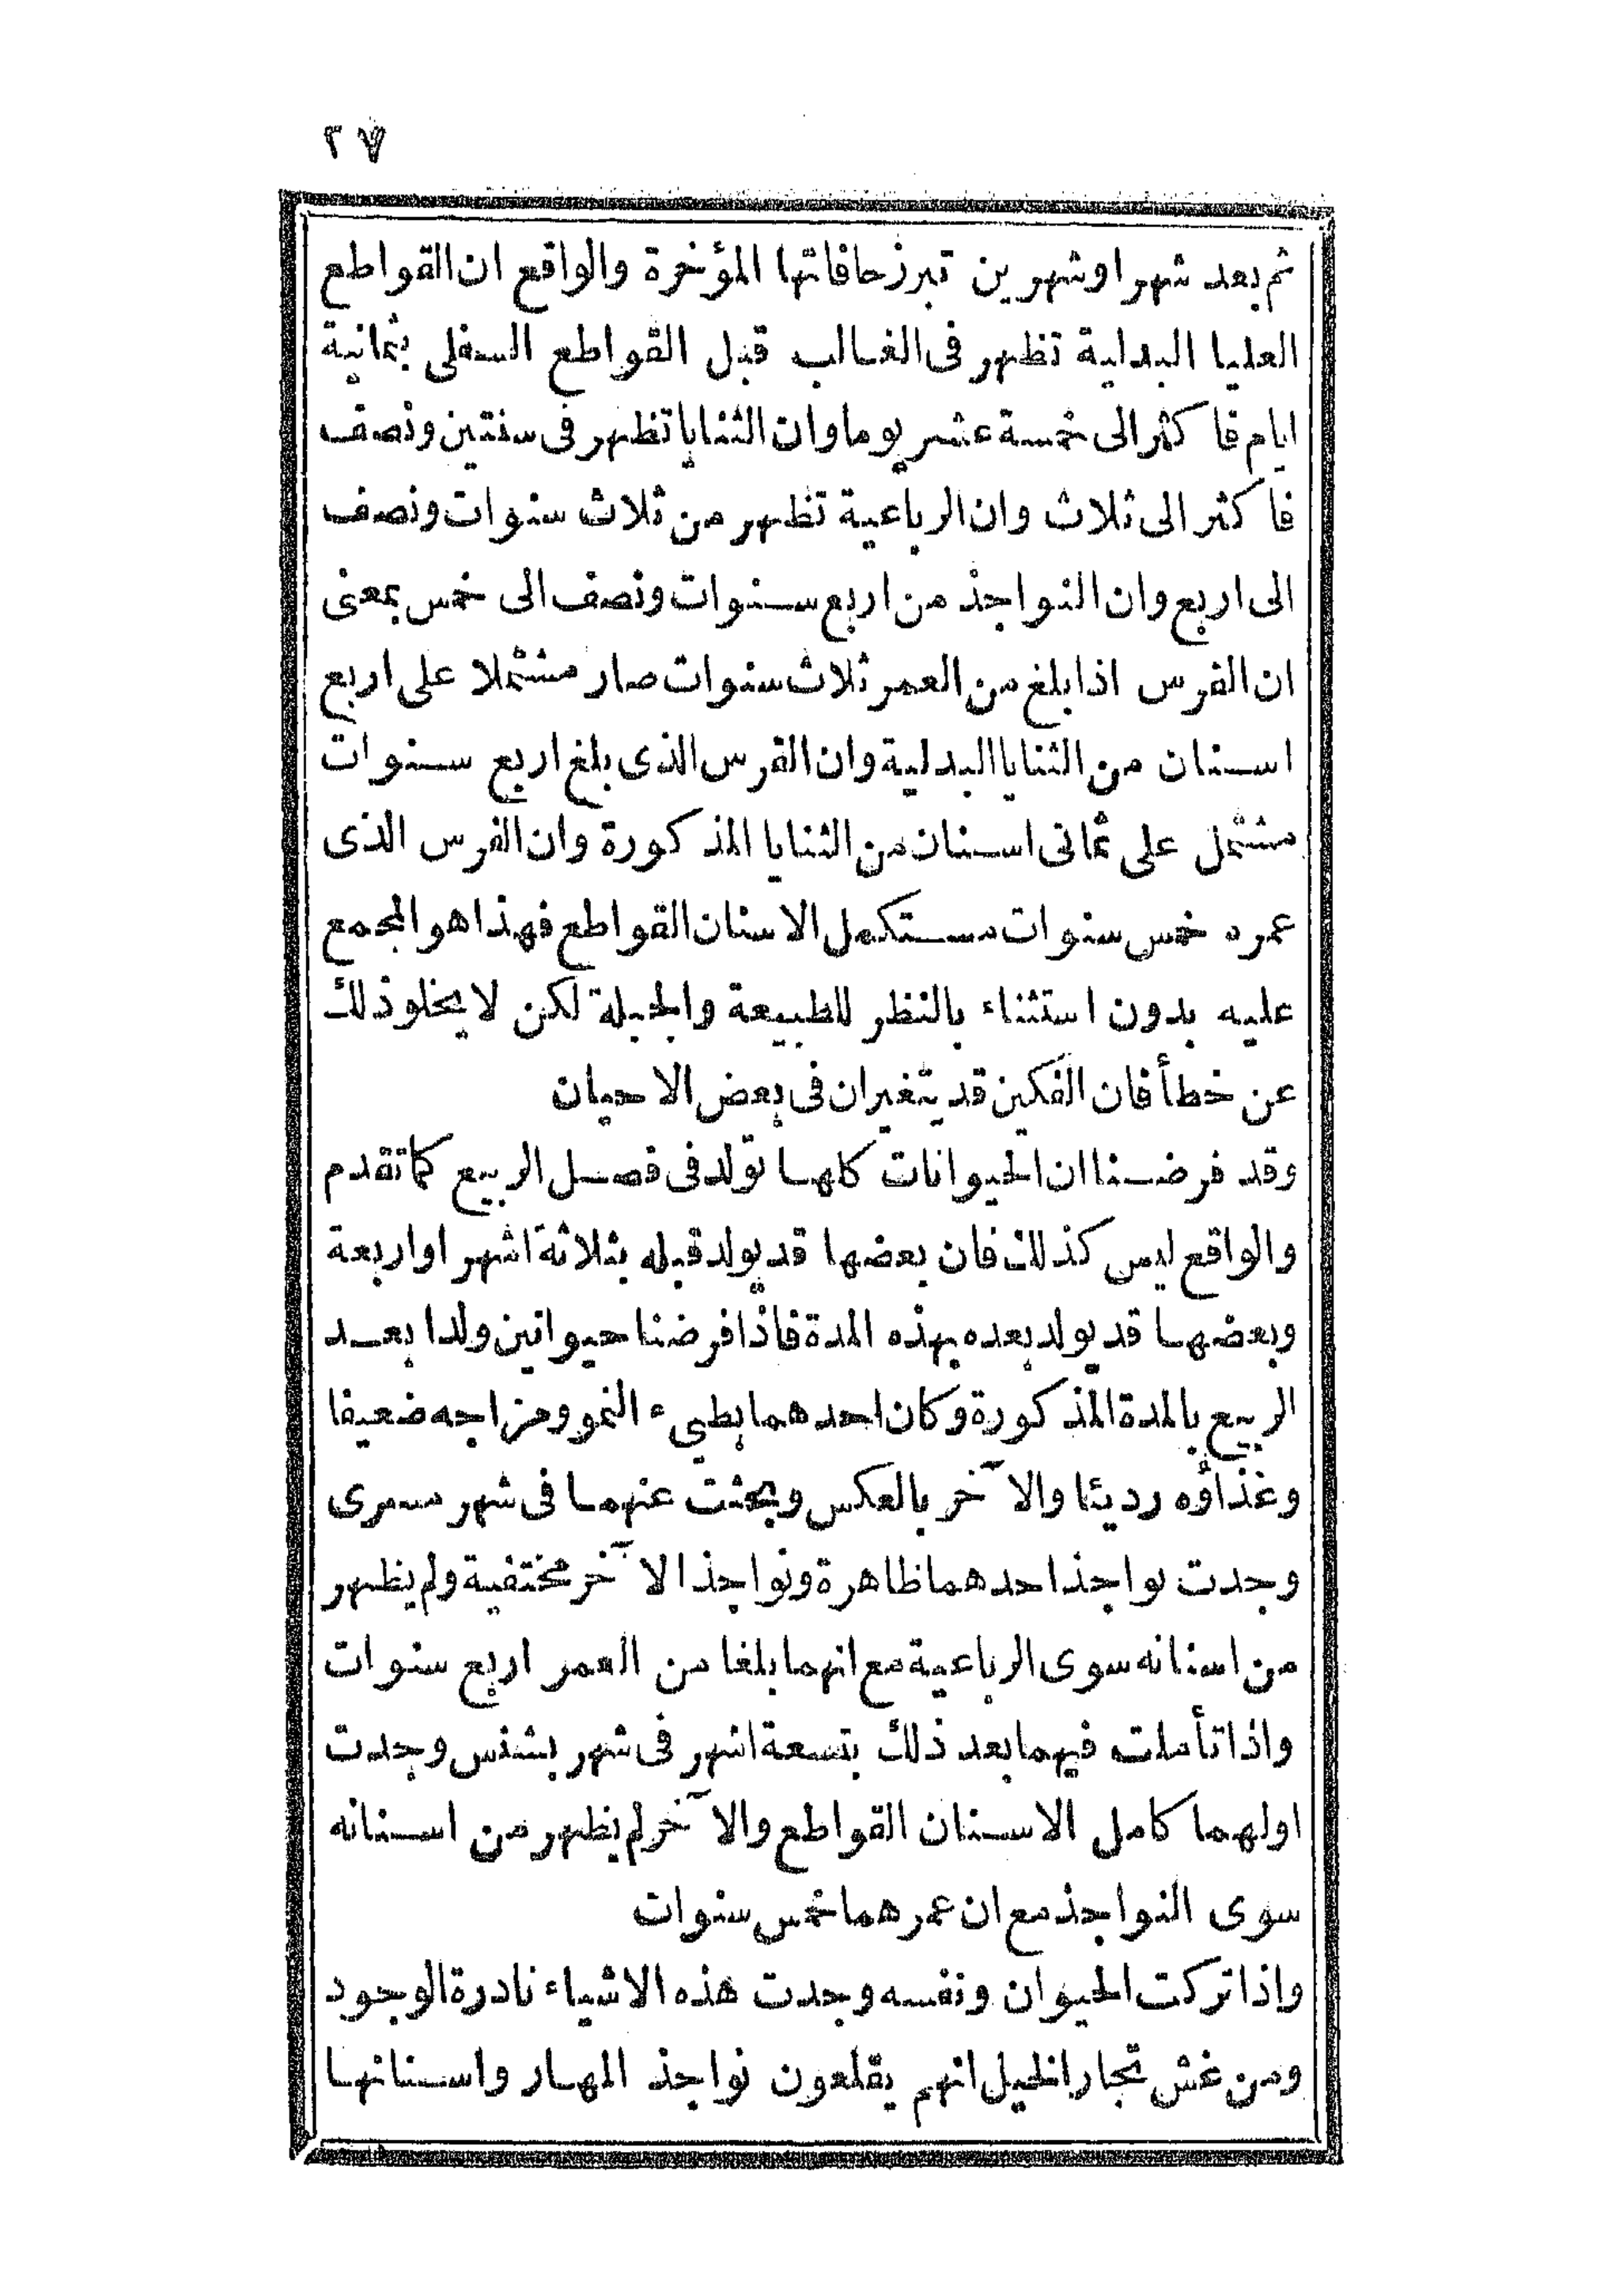 ٢٧
ثم بعد شهر او شهرين تبرز حافاتها المؤخرة والواقع ان القواطع
العليا البدلية تظهر فى الغالب قبل القواطع السفلى بثمانية
ايام فاكثر الى خمسة عشر يوما وان الثنايا تظهر فى سنتين ونصف
فاكثر الى ثلاث وان الرباعية تظهر من ثلاث سنوات ونصف
الى اربع وان النواجذ من اربع سنوات ونصف الى خمس بمعنى
ان الفرس اذا بلغ من العمر ثلاث سنوات صار مشتملا على اربع
اسنان من الثنايا البدلية وان الفرس الذى بلغ اربع سنوات
مشتمل على ثمانى اسنان من الثنايا المذكورة وان الفرس الذى
عمره خمس سنوات مستكمل الاسنان القواطع فهذا هو المجمع
عليه بدون استثناء بالنظر للطبيعة والجبلة لكن لا يخلو ذلك
عن خطأ فان الفكين قد يتغيران فى بعض الاحيان
وقد فرضنا ان الحيوانات كلها تولد فى فصل الربيع كما تقدم
والواقع ليس كذلك فان بعضها قد يولد قبله بثلاثة اشهر او اربعة
وبعضها قد يولد بعده بهذه المدة فاذا فرضنا حيوانين ولدا بعد
الربيع بالمدة المذكورة وكان احدهما بطيء النمو ومزاجه ضعيفا
وغذاؤه رديئا والآخر بالعكس وبحثت عنهما فى شهر مسرى
وجدت نواجذ احدهما ظاهرة ونواجذ الآخر مختفية ولم يظهر
من اسنانه سوى الرباعية مع انهما بلغا من العمر اربع سنوات
واذا تأملت فيهما بعد ذلك بتسعة اشهر فى شهر بشنس وجدت
اولهما كامل الاسنان القواطع والآخر لم يظهر من اسنانه
سوى النواجذ مع ان عمرهما خمس سنوات
واذا تركت الحيوان ونفسه وجدت هذه الاشياء نادرة الوجود
ومن غش تجار الخيل انهم يقلعون نواجذ المهار واسنانها